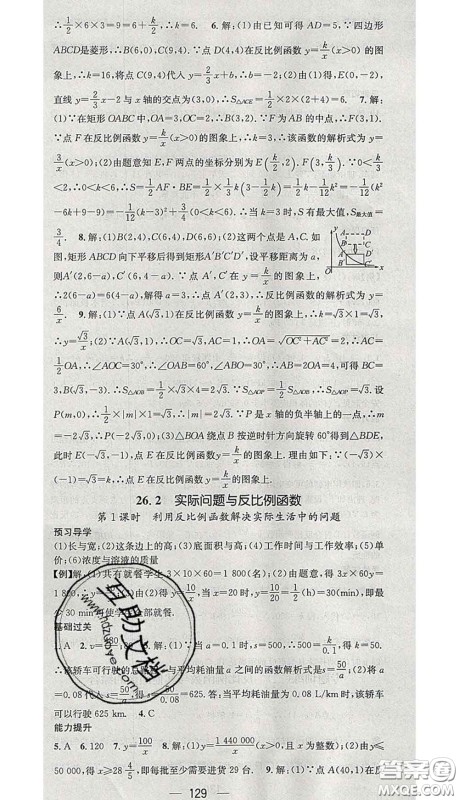 ∴1/2×6×3=9=6+k/2.∴k=6. 6.解:(1)由已知可得AD=5.∵四边形
ABCD是菱形,∴B(6,0),C(9,4).∵点D(4,4)在反比例函数y=k/x(x>0)的图
象上,∴k=16,将点C(9,4)代入y=2/3x+b,∴b=-2;(2)E(0,-2),
直线y=2/3x-2与x轴的交点为(3,0),∴S△AEC=1/2×2×(2+4)=6. 7.解:
(1)∵在矩形OABC中,OA=3,OC=2,∴B(3,2).∵F为AB的中点,∴F(3,1).
∵点F在反比例函数y=k/x(x>0)的图象上,∴k=3,∴该函数的解析式为y=
3/x(x>0);(2)由题意知E,F两点的坐标分别为E(k/2,2),F(3,k/3).∵0<k/3
<2,0<k<6,∴S=1/2AF·BE=1/2×1/3k(3-1/2k)=1/2k-1/12k²=-1/12(k²
-6k+9-9)=-1/12(k-3)²+3/4.∴当k=3时,S有最大值,S最大值=
3/4. 8.解:(1)B(2,4),C(6,4),D(6,6);(2)这两个点是A,C.如
图,矩形ABCD向下平移后得到矩形A′B′C′D′,设平移距离为a,
则A′(2,6-a),C′(6,4-a).∵点A′,C′在y=k/x的图象上,
∴2(6-a)=6(4-a),解得a=3,∴反比例函数的解析式为y=
6/x. 9.解:(1)∵点A(√3,1)在反比例函数y=k/x的图象上,∴k=√3×1=√3,
∴y=√3/x;(2)∵A(√3,1),∴OC=√3,AC=1,∴OA=√(OC²+AC²)=2,∴AC=
1/2OA,∴∠AOC=30°,∵∠AOB=60°,∴∠ABO=30°,∴AB=2OA=4,可得BC=3,
B(√3,-3).∴S△AOB=1/2×√3×4=2√3.∵S△AOP=1/2S△AOB,∴S△AOP=√3.设
P(m,0),∴1/2×|m|×1=√3,∴|m|=2√3.∵P是x轴的负半轴上的一点,∴m
=-2√3,∴P(-2√3,0);(3)△BOA绕点B按逆时针方向旋转60°得到△BDE,
此时E(-√3,-1),点E在反比例函数y=√3/x的图象上.理由:∵-√3×(-1)=√3=k,∴点E在反比例函数y=√3/x的图象上.
26.2 实际问题与反比例函数
第1课时 利用反比例函数解决实际生活中的问题
预习导学
(1)长与宽;(2)这条边上的高;(3)底面积与高;(4)工作时间与工作效率;(5)单
价;(6)浓度与溶液的质量
【例】解:(1)共有就餐学生3×10×60=1 800(名);(2)由题意,得3x×60y=
30 min可使学生全部就餐.
基础过关
该轿车可行驶的总路程s与平均耗油量a之间的函数解析式是s=50/a;(2)将a
=0.08代入s=50/a,得s=50/0.08=625.答:当平均耗油量为0.08 L/km时,该轿车
可以行驶625 km. 4.C
能力提升
5.A 6.120 7.y=100/x 8.解:(1)y=1 440 000/x(x为整数);(2)由题意,得y≤
50 000,得x≥28 4/5,即每批至少需要进货29台. 9.解:(1)∵点A(40,1)在反
129
互助文档
www.hdzuoye.com
答案圈
MXQE.COM